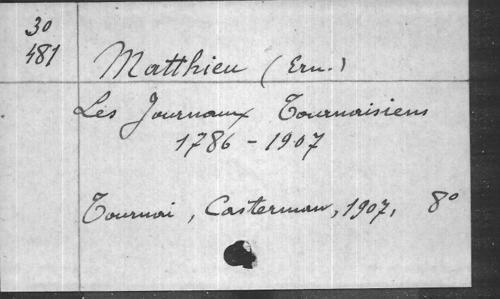 30
481
Matthieu (Ern.)
Les Journaux Tournaisiens
1786 - 1907
Tournai, Casterman, 1907, 8°